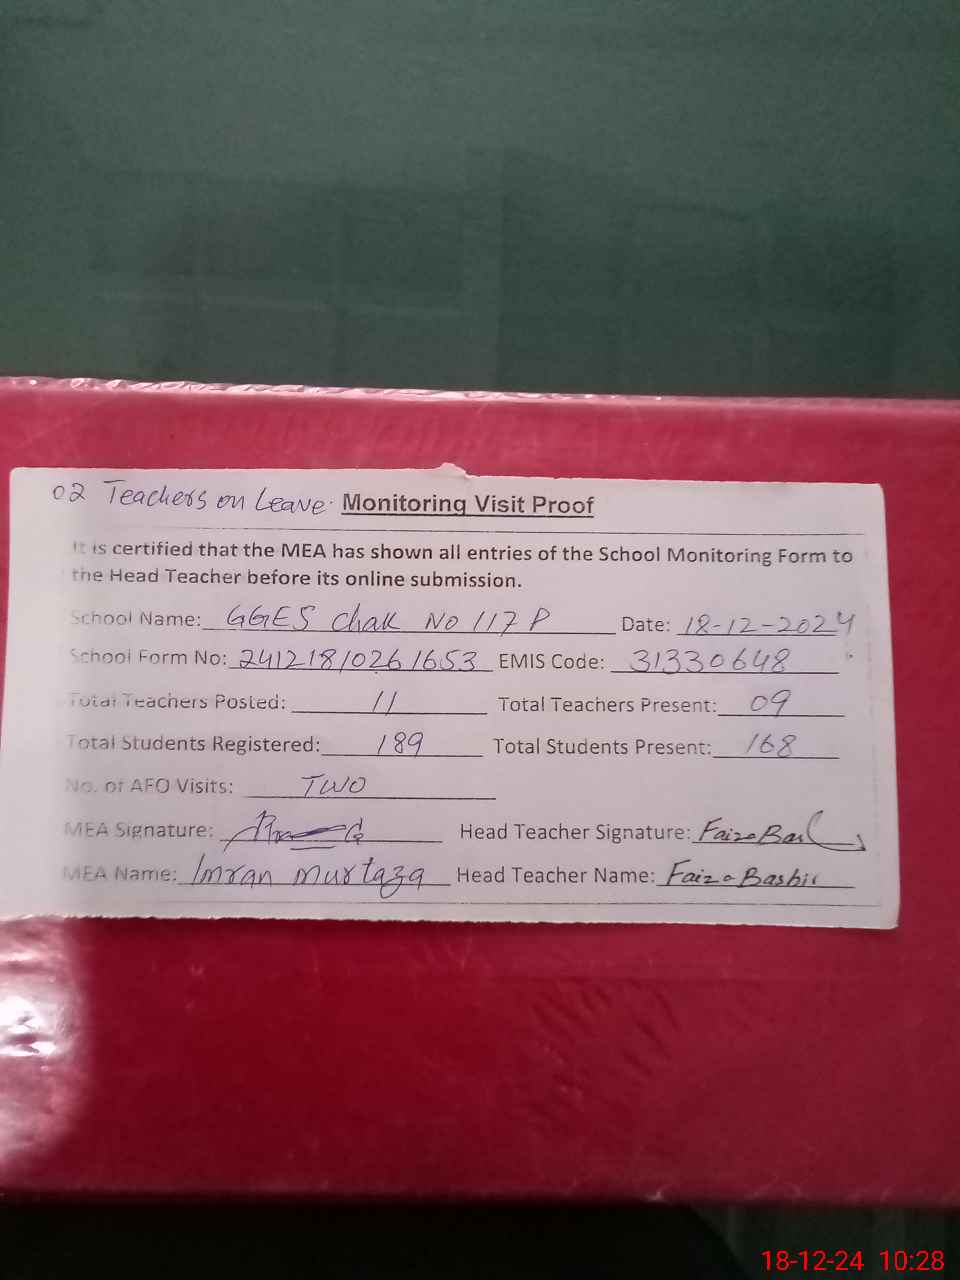 02 Teachers on Leave. Monitoring Visit Proof
It is certified that the MEA has shown all entries of the School Monitoring Form to
the Head Teacher before its online submission.
School Name: GGES Chak No 117 P Date: 18-12-2024
School Form No: 241218/0261653 EMIS Code: 31330648
Total Teachers Posted: 11 Total Teachers Present: 09
Total Students Registered: 189 Total Students Present: 168
No. of AEO Visits: TWO
MEA Signature: Head Teacher Signature: Faiza Bas
MEA Name: Imran murtaza Head Teacher Name: Faiza Bashir
18-12-24 10:28